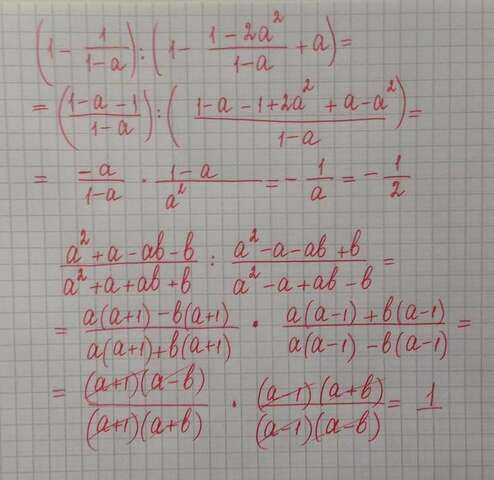 (1 - 1/(1-a)) : (1 - (1-2a²)/(1-a) + a) =
= ((1-a-1)/(1-a)) : ((1-a-1+2a²+a-a²)/(1-a)) =
= (-a)/(1-a) · (1-a)/a² = - 1/a = - 1/2
(a²+a-ab-b)/(a²+a+ab+b) : (a²-a-ab+b)/(a²-a+ab-b) =
= (a(a+1)-b(a+1))/(a(a+1)+b(a+1)) · (a(a-1)+b(a-1))/(a(a-1)-b(a-1)) =
= ((a+1)(a-b))/((a+1)(a+b)) · ((a-1)(a+b))/((a-1)(a-b)) = 1